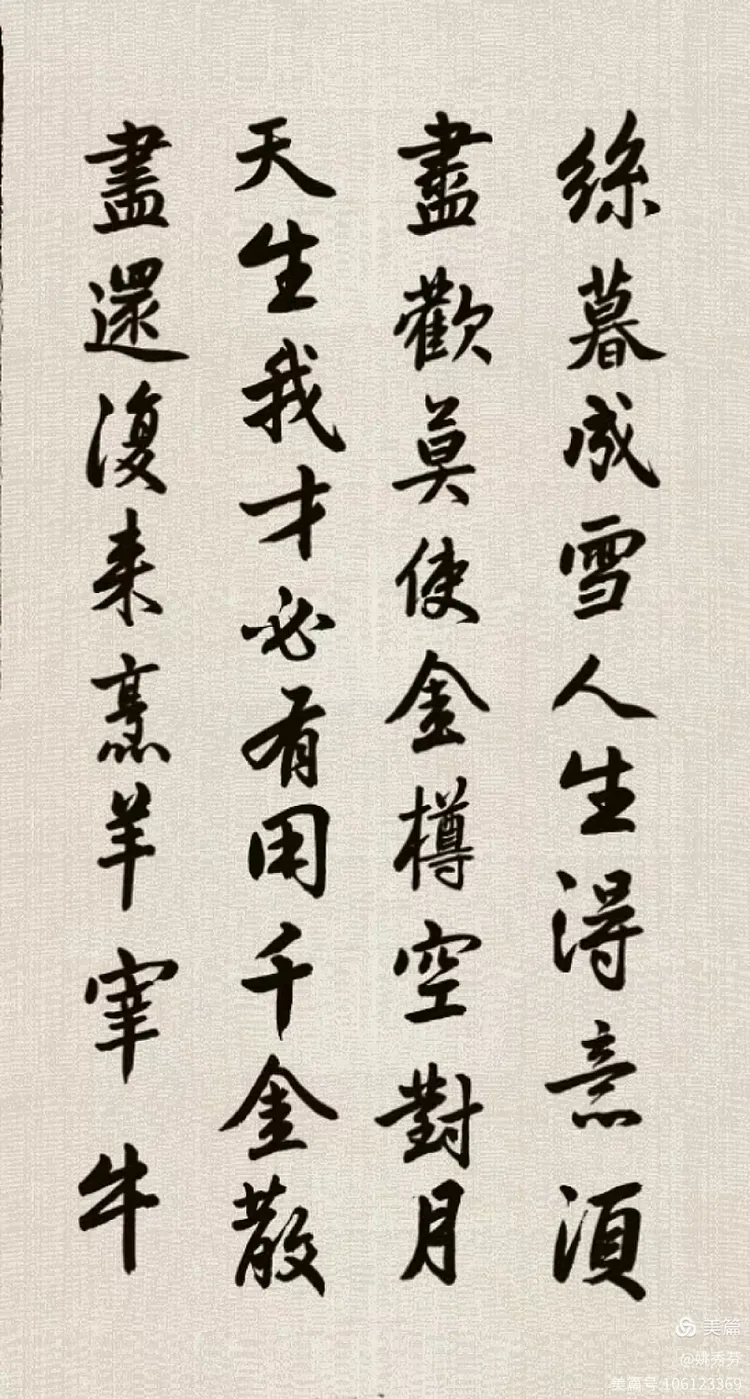 絲暮成雪人生得意須
盡歡莫使金樽空對月
天生我才必有用千金散
盡還復来烹羊宰牛
美篇
@姚秀芬
美篇号:106123369